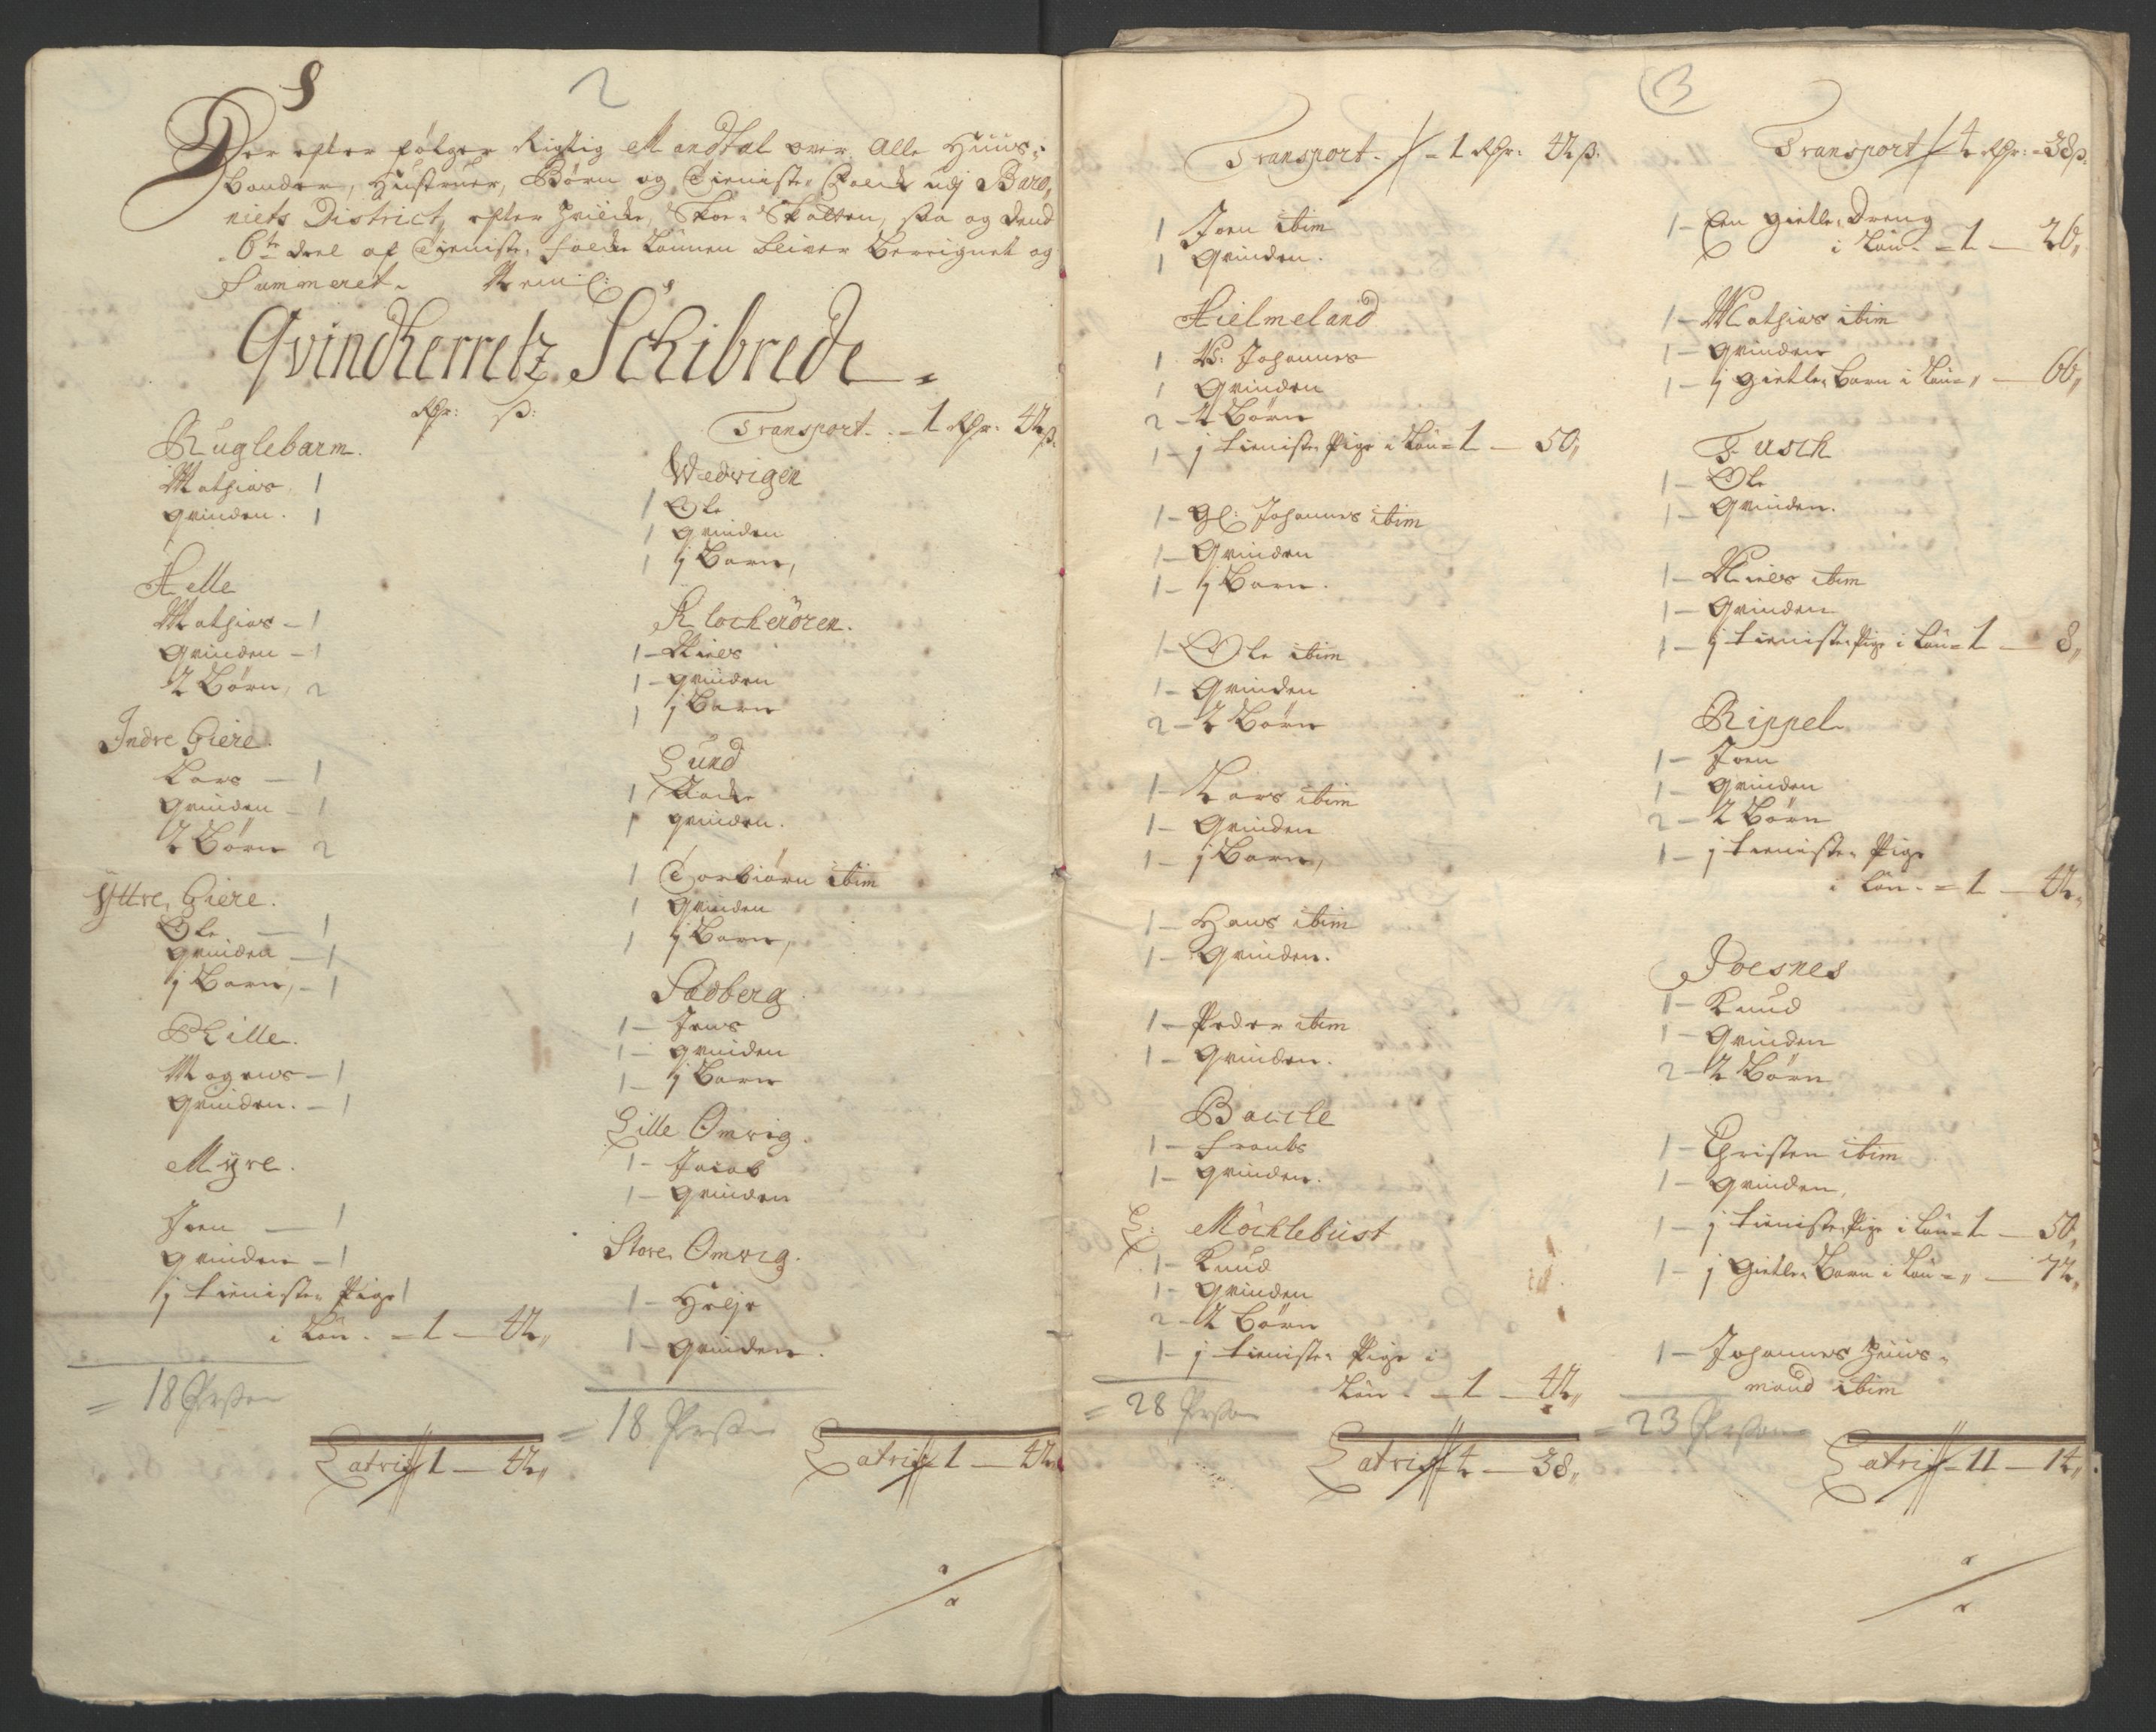 §
2
Her efter følger Rigtig Mandtal over Alle Huus-
bonder, Hustruer, Børn og Tieniste Folck udj Baro-
niets District, efter huilcke, Skoe-Skatten, saa og dend
6te deel af Tieniste folckes Lønnen bliver Bereignet og
Summeret.
Qvindherretz Schibrede
Rdr: ß:
Kuglebarm.
Mathias 1
Qvinden. 1
Helle
Mathias - 1
Qvinden - 1
2 Børn, 2
Indre Giere.
Lars - 1
Qvinden - 1
2 Børn 2
Yttre Giere.
Ole - 1
Qvinden - 1
j Barn, - 1
Rille.
Mogens - 1
Qvinden. - 1
Myre.
Joen - 1
Qvinden - 1
j tieniste Pige 1
i Løn. = 1 - 42,,
= 18 Personer
Latris 1 - 42,,
Transport - 1 Rdr: 42 ß
Wedvigen
1 Ole
1 Qvinden
1 j Barn,
Klockerøren.
1 - Niels
1 - Qvinden
1 j Barn
Sund
1
1 Qvinden.
1 Torbiørn ibim
1 Qvinden
1 j Barn,
Sadberg.
1 - Jens
1 - Qvinden
1 - j Barn
Lille Omvig.
1 - Jacob
1 - Qvinden
Store Omvig.
1 - Helje
1 - Qvinden.
= 18 Personer
Latris 1 - 42,,
3
Transport. = 1 Rdr: 42 ß:
1 Joen ibim
1 Qvinden.
Hielmeland
1 Johannes
1 Qvinden
2 - 2 Børn
1 - j tieniste Pige i Løn = 1 - 50,,
1 - Gl: Johannes ibim
1 - Qvinden
1 - j Barn.
1 - Ole ibim
1 - Qvinden
2 - 2 Børn
1 - Lars ibim
1 - Qvinden
1 - j Barn,
1 - Hans ibim
1 - Qvinden.
1 - Peder ibim
1 - Qvinden.
Bacche
1 - Frants
1 - Qvinden.
L: Möchlebust
1 - Knud
1 - Qvinden
2 - 2 Børn
1 - j tieniste Pige i
Løn. - 1 - 42,,
= 28 Personer
Latris 4 - 38,,
Transport 4 Rdr: - 38 ß.
1 - Een gietle Dreng
i Løn. = 1 - 26,,
1 - Mathias ibim
1 - Qvinden
1 - j gietle Barn i Løn = ,, - 66,,
Fusch
1 - Ole
1 - Qvinden.
1 - Niels ibim
1 - Qvinden
1 - j tieniste Pige i Løn = 1 - 8,,
Rippel
1 - Joen
1 - Qvinden
2 - 2 Børn
1 - j tieniste Pige
i Løn. = 1 - 42,,
Joesnes
1 - Knud
1 - Qvinden
2 - 2 Børn
1 - Christen ibim
1 - Qvinden,
1 - j tieniste Pige i Løn = 1 - 50,,
1 - j Gietle Barn i Løn = ,, - 72,,
1 - Johannes Huus-
mand ibim
= 23 Personer
Latris 11 - 14,,